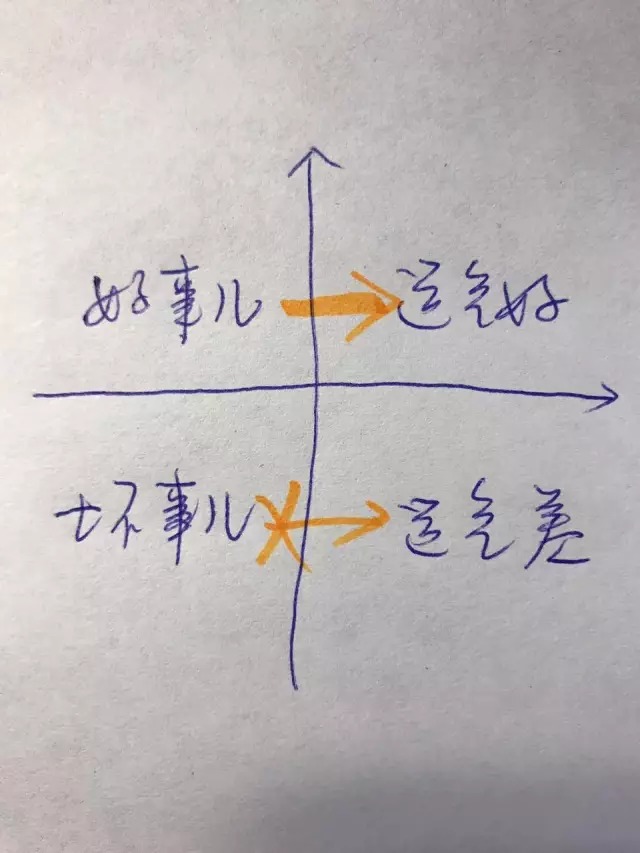 好事儿 运气好
坏事儿 运气差